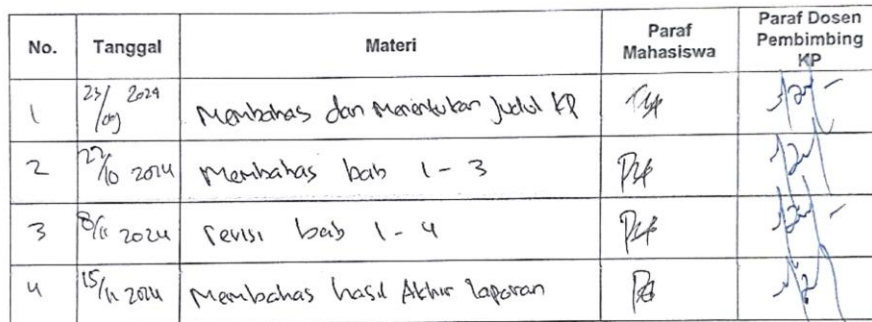 No. Tanggal Materi Paraf Mahasiswa Paraf Dosen Pembimbing KP
1 23/09 2024 Membahas dan Menentukan Judul KP
2 22/10 2024 Membahas bab 1 - 3
3 8/11 2024 revisi bab 1 - 4
4 15/11 2024 Membahas hasil Akhir laporan